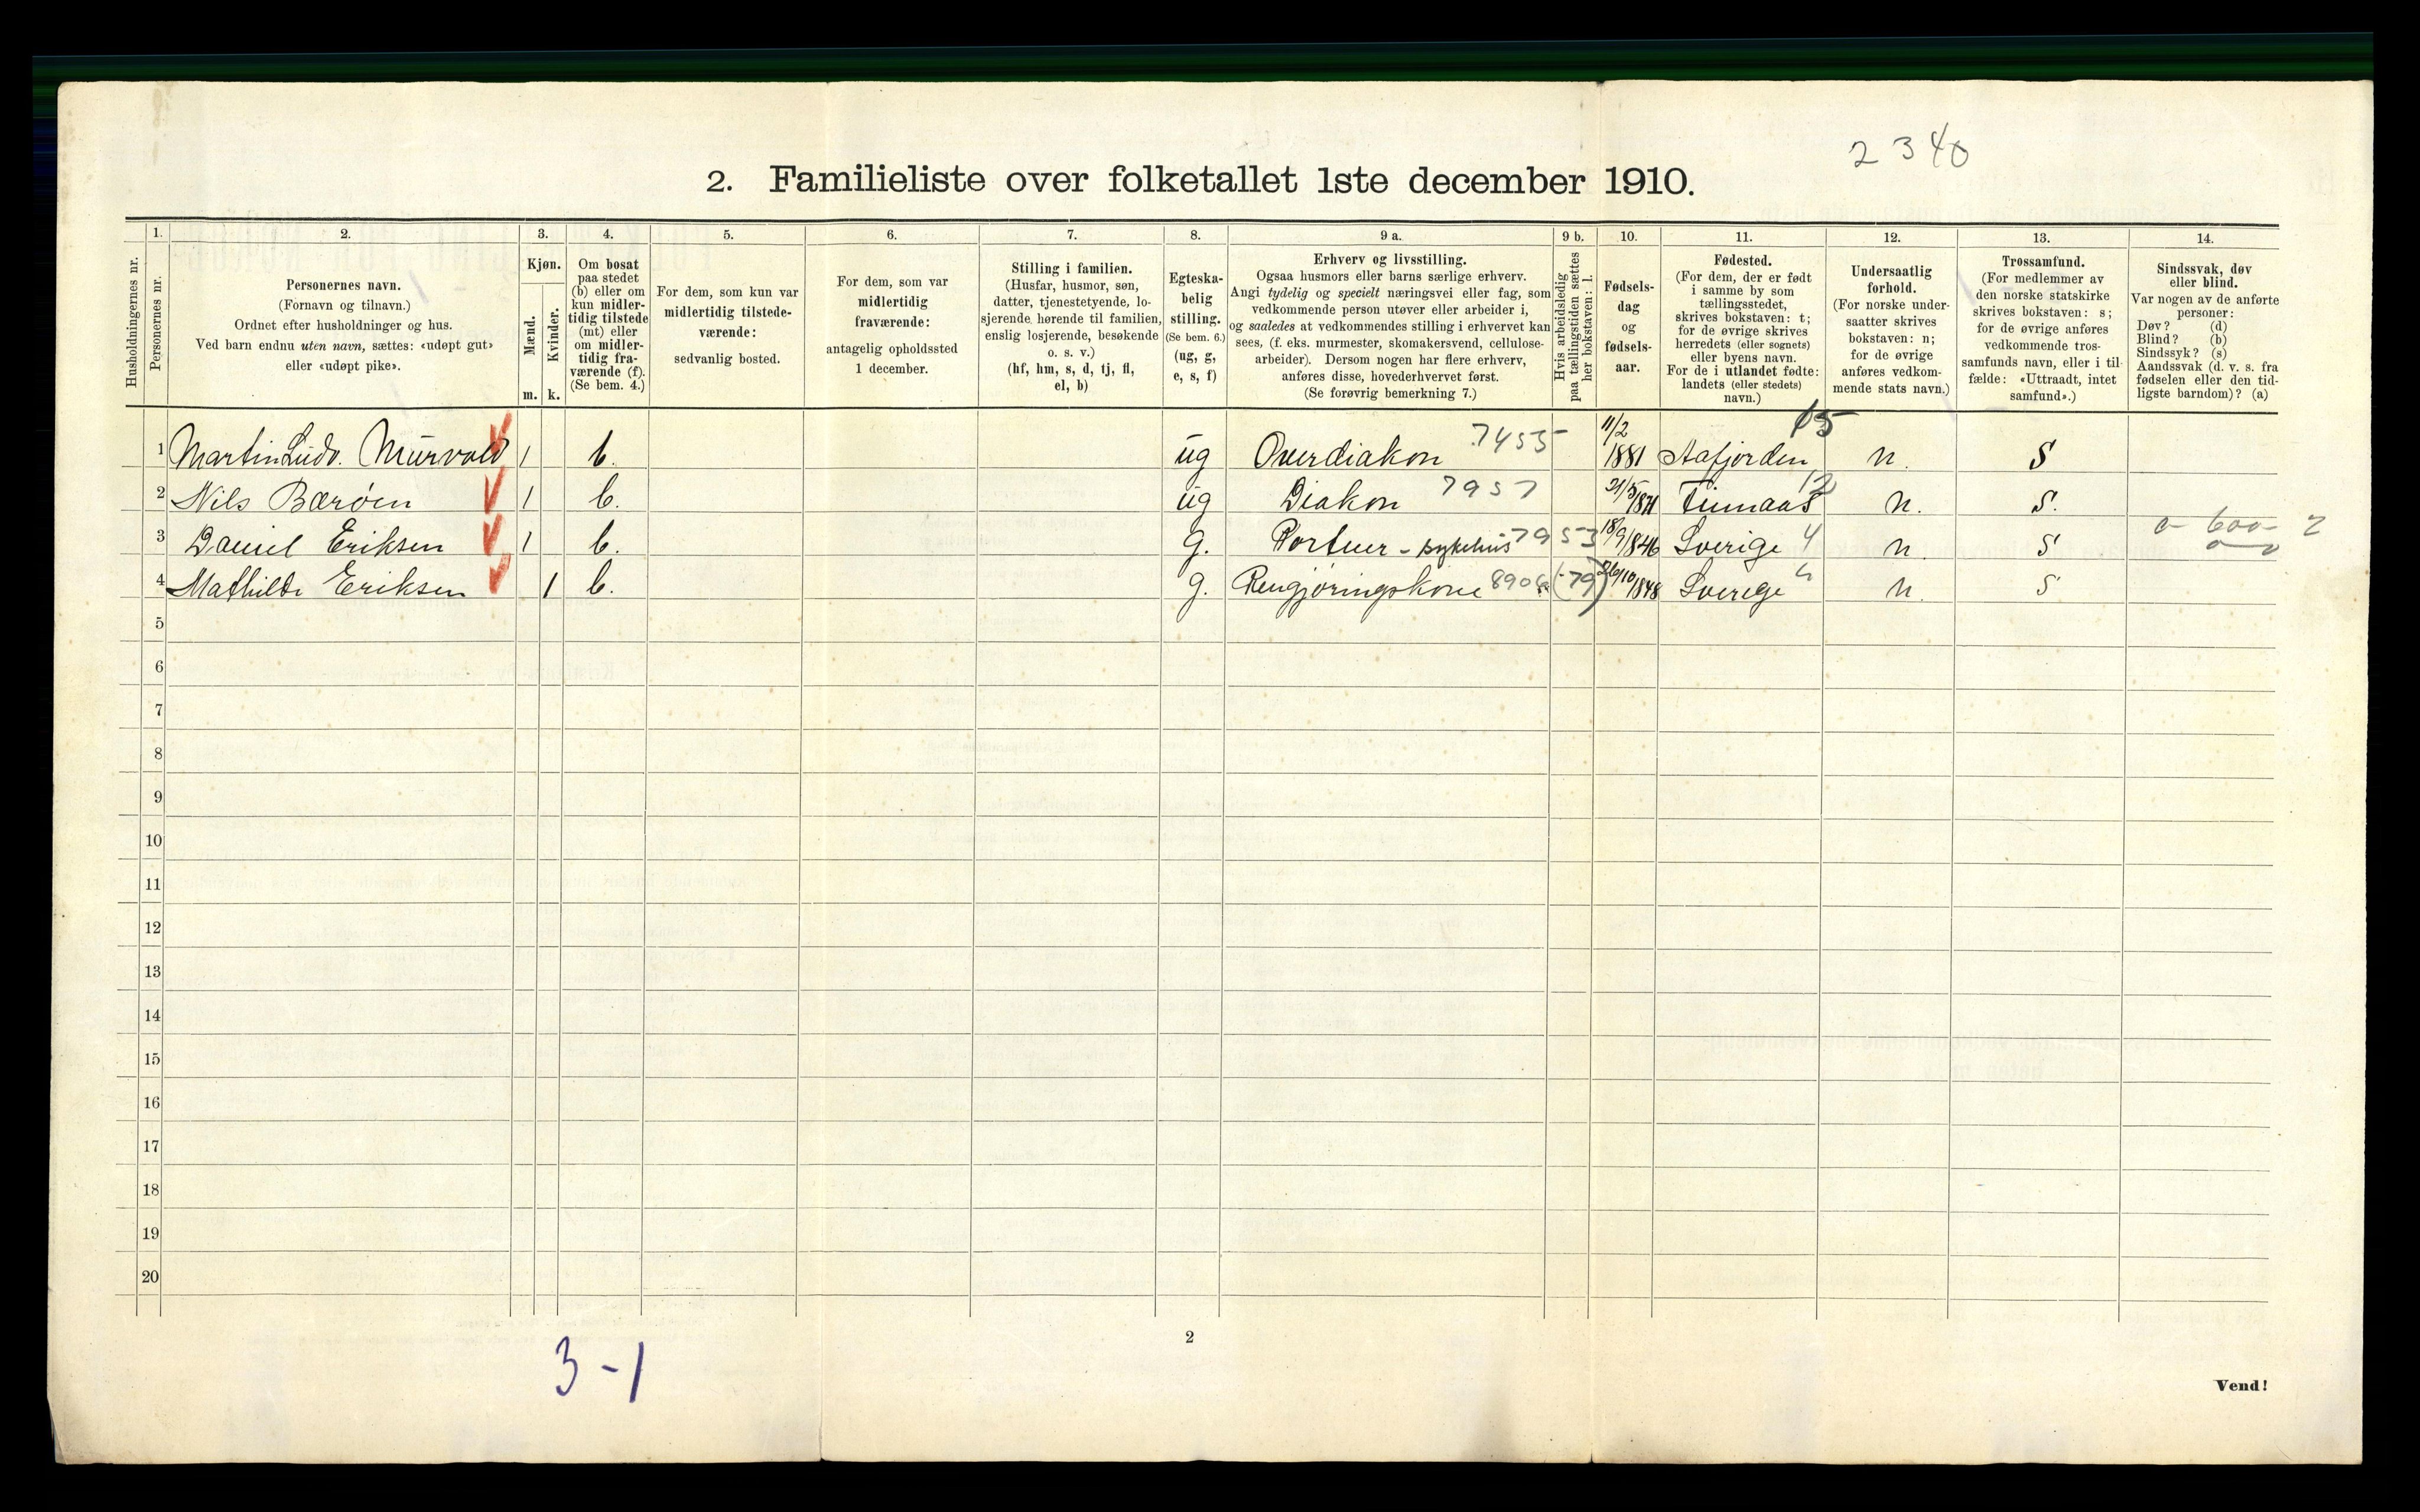 2340
2. Familieliste over folketallet 1ste december 1910.
Husholdningernes nr.
1.
Personernes nr.
2.
Personernes navn.
(Fornavn og tilnavn.)
Ordnet efter husholdninger og hus.
Ved barn endnu uten navn, sættes: «udøpt gut»
eller «udøpt pike».
3.
Kjøn.
Mænd.
Kvinder.
m. k.
4.
Om bosat
paa stedet
(b) eller om
kun midler-
tidig tilstede
(mt) eller
om midler-
tidig fra-
værende (f).
(Se bem. 4.)
5.
For dem, som kun var
midlertidig tilstede-
værende:
sedvanlig bosted.
6.
For dem, som var
midlertidig
fraværende:
antagelig opholdssted
1 december.
7.
Stilling i familien.
(Husfar, husmor, søn,
datter, tjenestetyende, lo-
sjerende hørende til familien,
enslig losjerende, besøkende
o. s. v.)
(hf, hm, s, d, tj, fl,
el, b)
8.
Egteska-
belig
stilling.
(Se bem. 6.)
(ug, g,
e, s, f)
9 a.
Erhverv og livsstilling.
Ogsaa husmors eller barns særlige erhverv.
Angi tydelig og specielt næringsvei eller fag, som
vedkommende person utøver eller arbeider i,
og saaledes at vedkommendes stilling i erhvervet kan
sees, (f. eks. murmester, skomakersvend, cellulose-
arbeider). Dersom nogen har flere erhverv,
anføres disse, hovederhvervet først.
(Se forøvrig bemerkning 7.)
9 b.
Hvis arbeidsledig
paa tællingstiden sættes
her bokstaven: l.
10.
Fødsels-
dag
og
fødsels-
aar.
11.
Fødested.
(For dem, der er født
i samme by som
tællingsstedet,
skrives bokstaven: t;
for de øvrige skrives
herredets (eller sognets)
eller byens navn.
For de i utlandet fødte:
landets (eller stedets)
navn.)
12.
Undersaatlig
forhold.
(For norske under-
saatter skrives
bokstaven: n;
for de øvrige
anføres vedkom-
mende stats navn.)
13.
Trossamfund.
(For medlemmer av
den norske statskirke
skrives bokstaven: s;
for de øvrige anføres
vedkommende tros-
samfunds navn, eller i til-
fælde: «Uttraadt, intet
samfund».)
14.
Sindssvak, døv
eller blind.
Var nogen av de anførte
personer:
Døv? (d)
Blind? (b)
Sindssyk? (s)
Aandssvak (d. v. s. fra
fødselen eller den tid-
ligste barndom)? (a)
1 Martin Ludv. Murvold 1 b. ug Overdiakon 7455 11/2 1881 Aafjorden 15 n. S
2 Nils Bærøen 1 b. ug Diakon 7957 21/5 1871 Finnaas 12 n. S.
3 Daniel Eriksen 1 b. g. Portner - sykehus 7953 18/9 1846 Sverige 4 n. S 0-600-2
4 Mathilde Eriksen 1 b. g. Rengjøringskone 8906 (-79) 26/10 1848 Sverige 4 n. S
5
6
7
8
9
10
11
12
13
14
15
16
17
18
19
20
3-1
2
Vend!